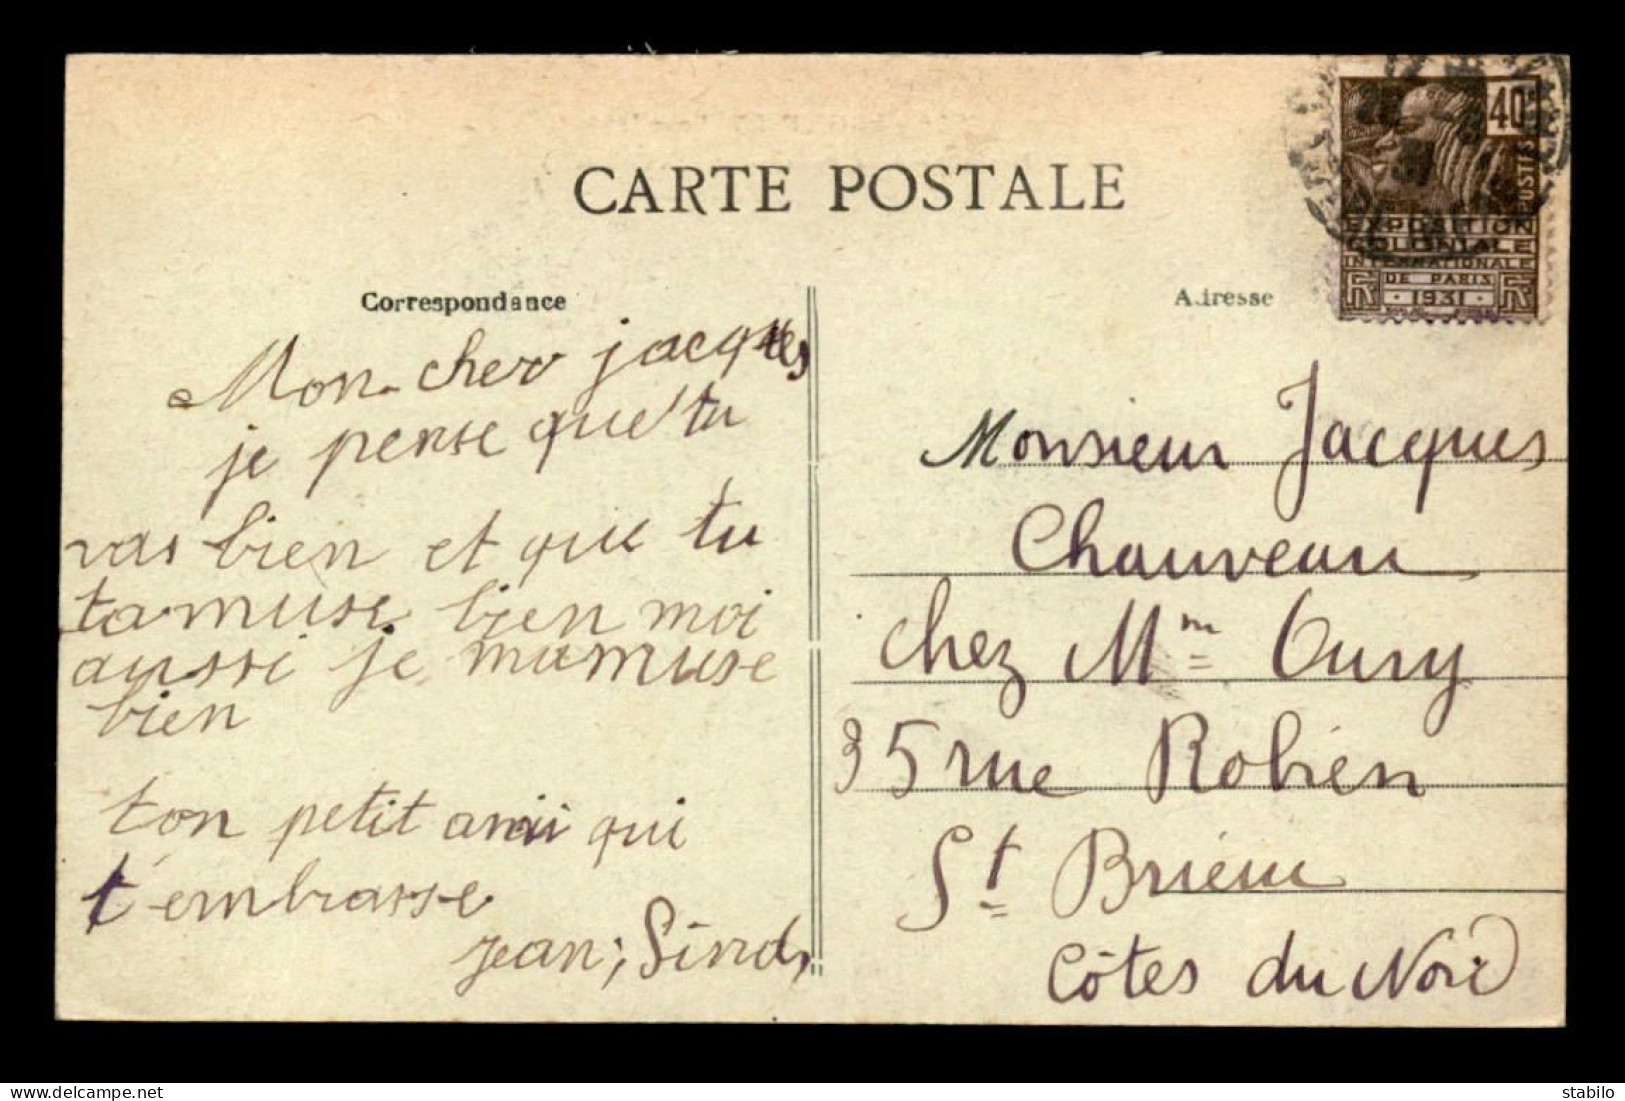 CARTE POSTALE
Correspondance
Mon cher jacques
je pense que tu
vas bien et que tu
tamuse bien moi
aussi je mamuse
bien
ton petit ami qui
t'embrasse
jean,
Adresse
40c
POSTES
EXPOSITION
COLONIALE
INTERNATIONALE
DE PARIS
·1931·
Monsieur Jacques
Chauveau
chez Mme Oury
35 rue Robien
St Brieuc
Côtes du Nord
delcampe.net
stabilo